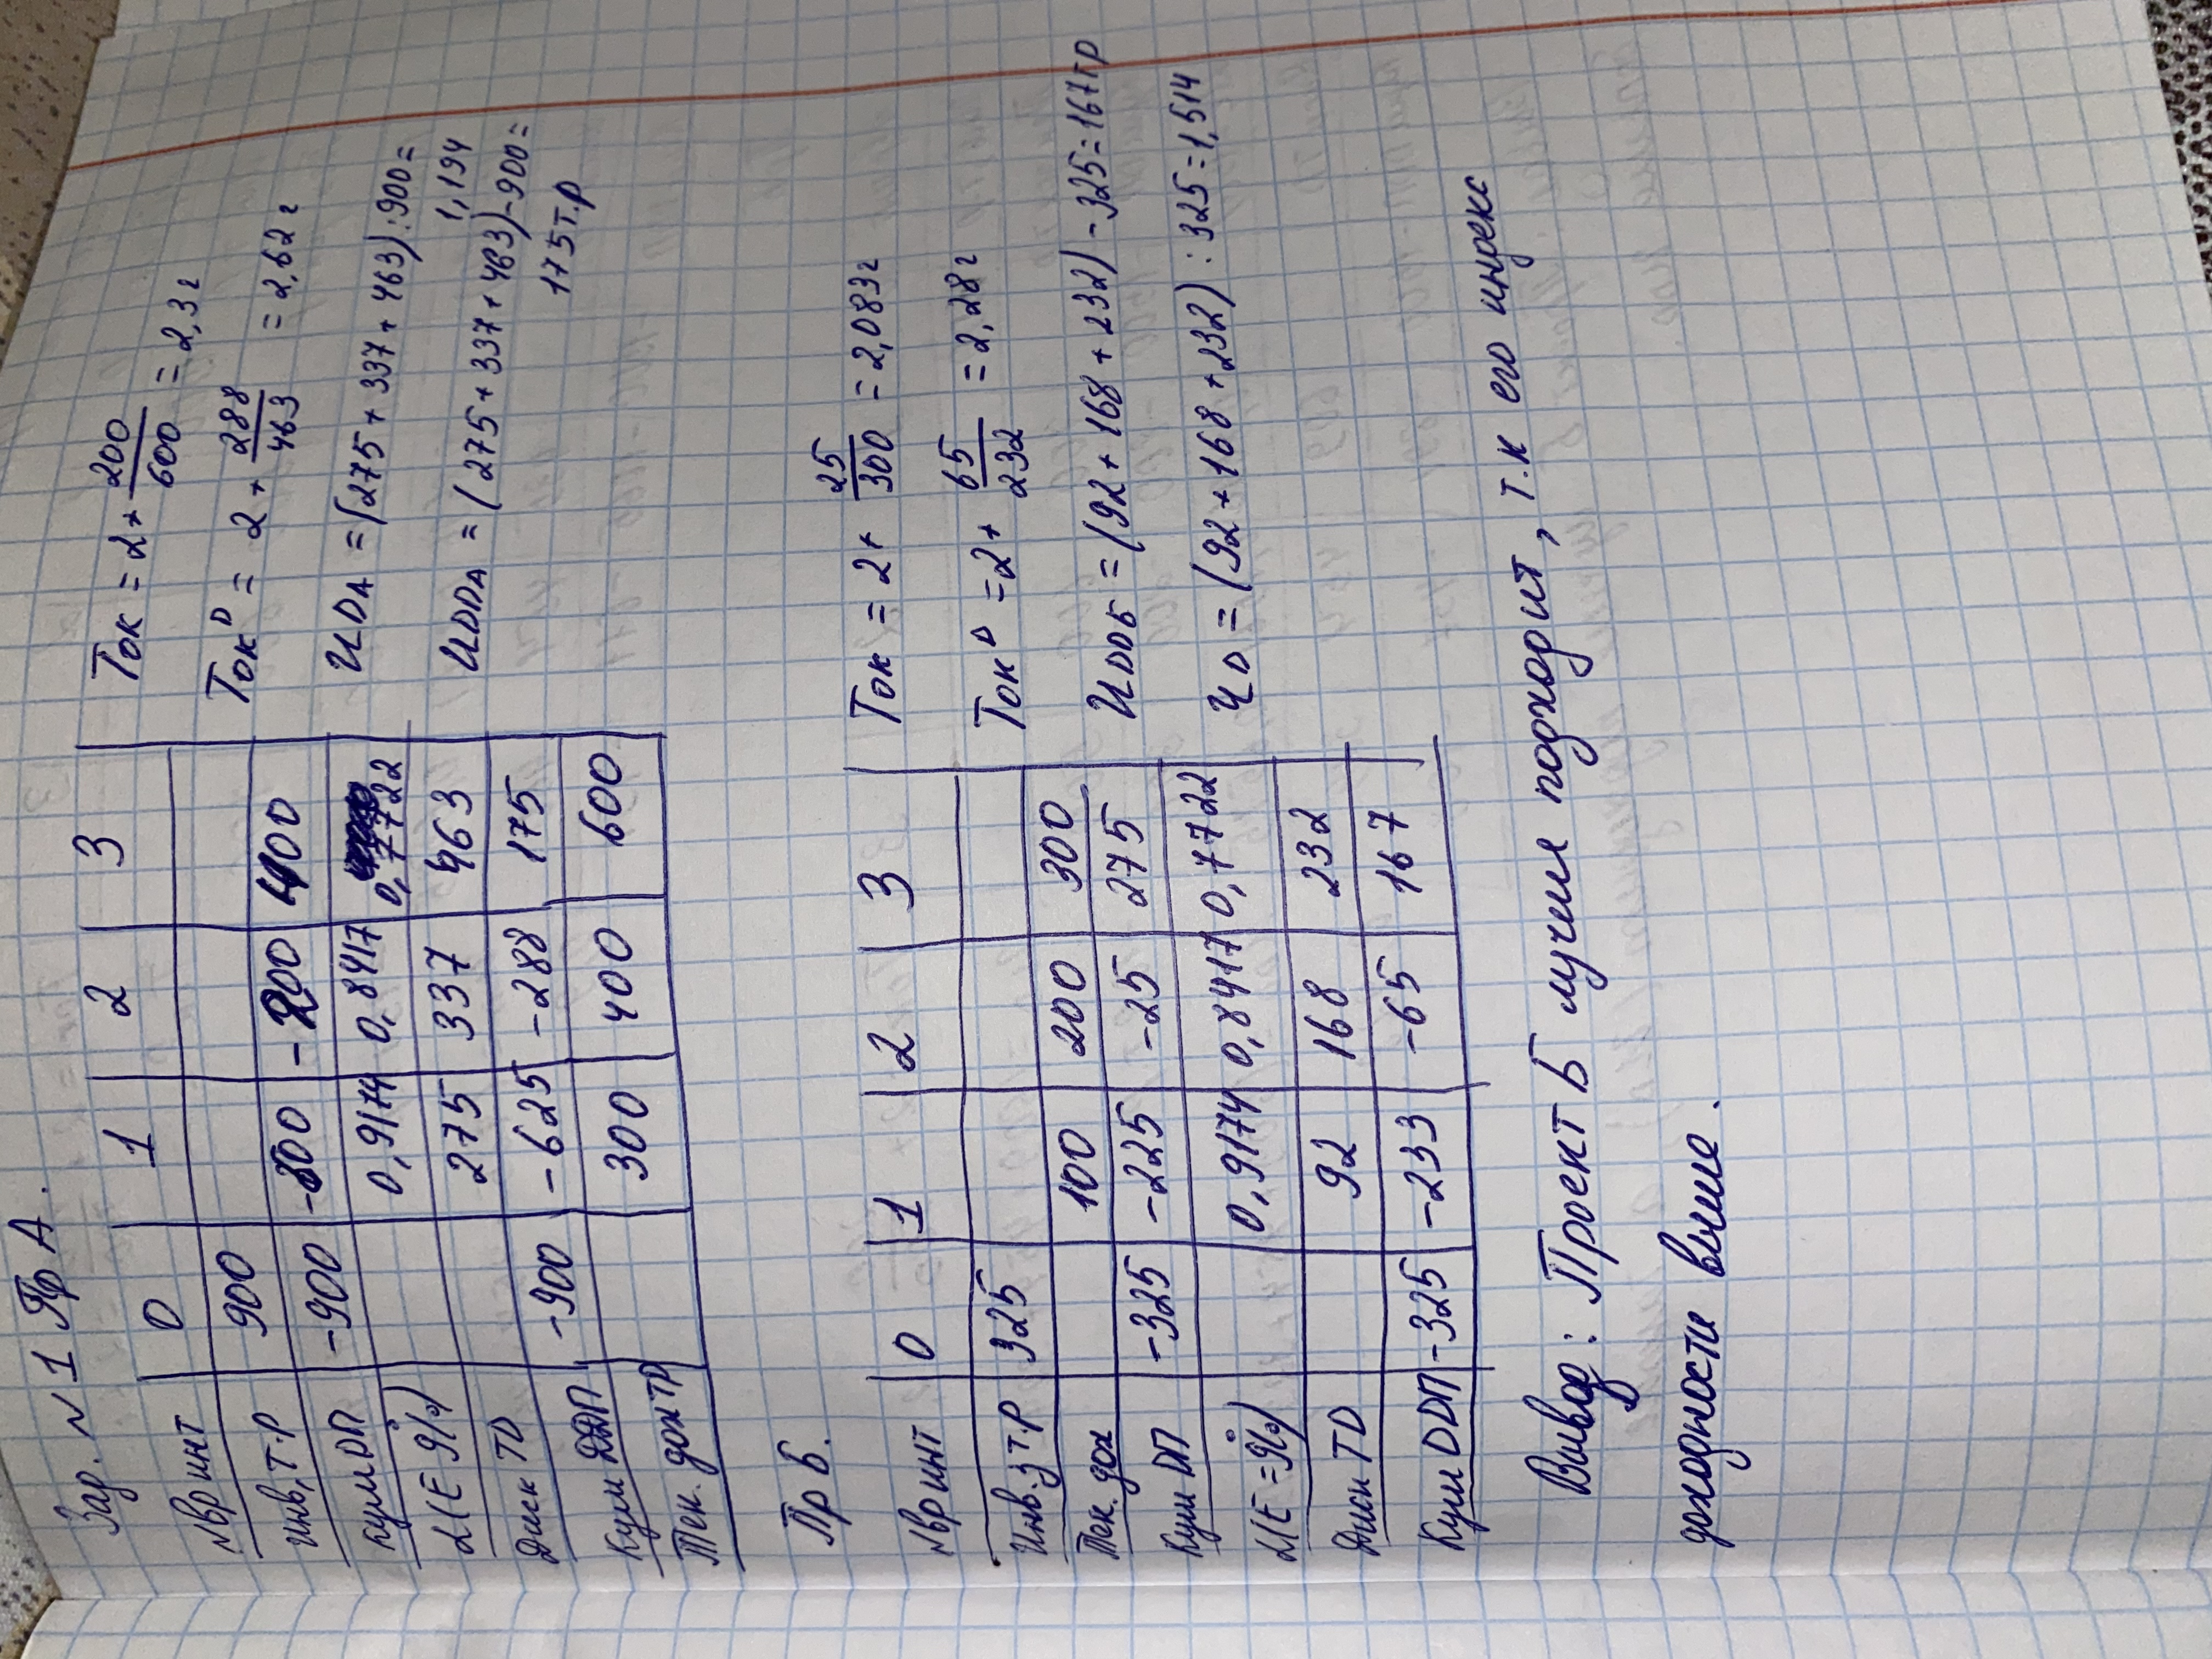 Зад. №1 Пр А.
№вр инт 0 1 2 3
Инв, т.р 900
Кум ДП -900 -600 -200 400
α(E 9%) 0,9174 0,8417 0,7722
Диск ТD 275 337 463
Кум ДДП -900 -625 -288 175
Тек. дох тр 300 400 600
Ток = 2 + 200/600 = 2,3 г
Ток^D = 2 + 288/463 = 2,62 г
ИDA = (275 + 337 + 463) : 900 =
1,194
ИDDA = (275 + 337 + 463) - 900 =
175 т.р
Пр Б.
№вр инт 0 1 2 3
Инв. з т.р 325
Тек. дох 100 200 300
Кум DП -325 -225 -25 275
α(E = 9%) 0,9174 0,8417 0,7722
Диск ТD 92 168 232
Кум DDП -325 -233 -65 167
Ток = 2 + 25/300 = 2,083 г
Ток^D = 2 + 65/232 = 2,28 г
ИDDБ = (92 + 168 + 232) - 325 = 167 т р
ИD = (92 + 168 + 232) : 325 = 1,514
Вывод: Проект Б лучше подходит, т.к его индекс
доходности выше.